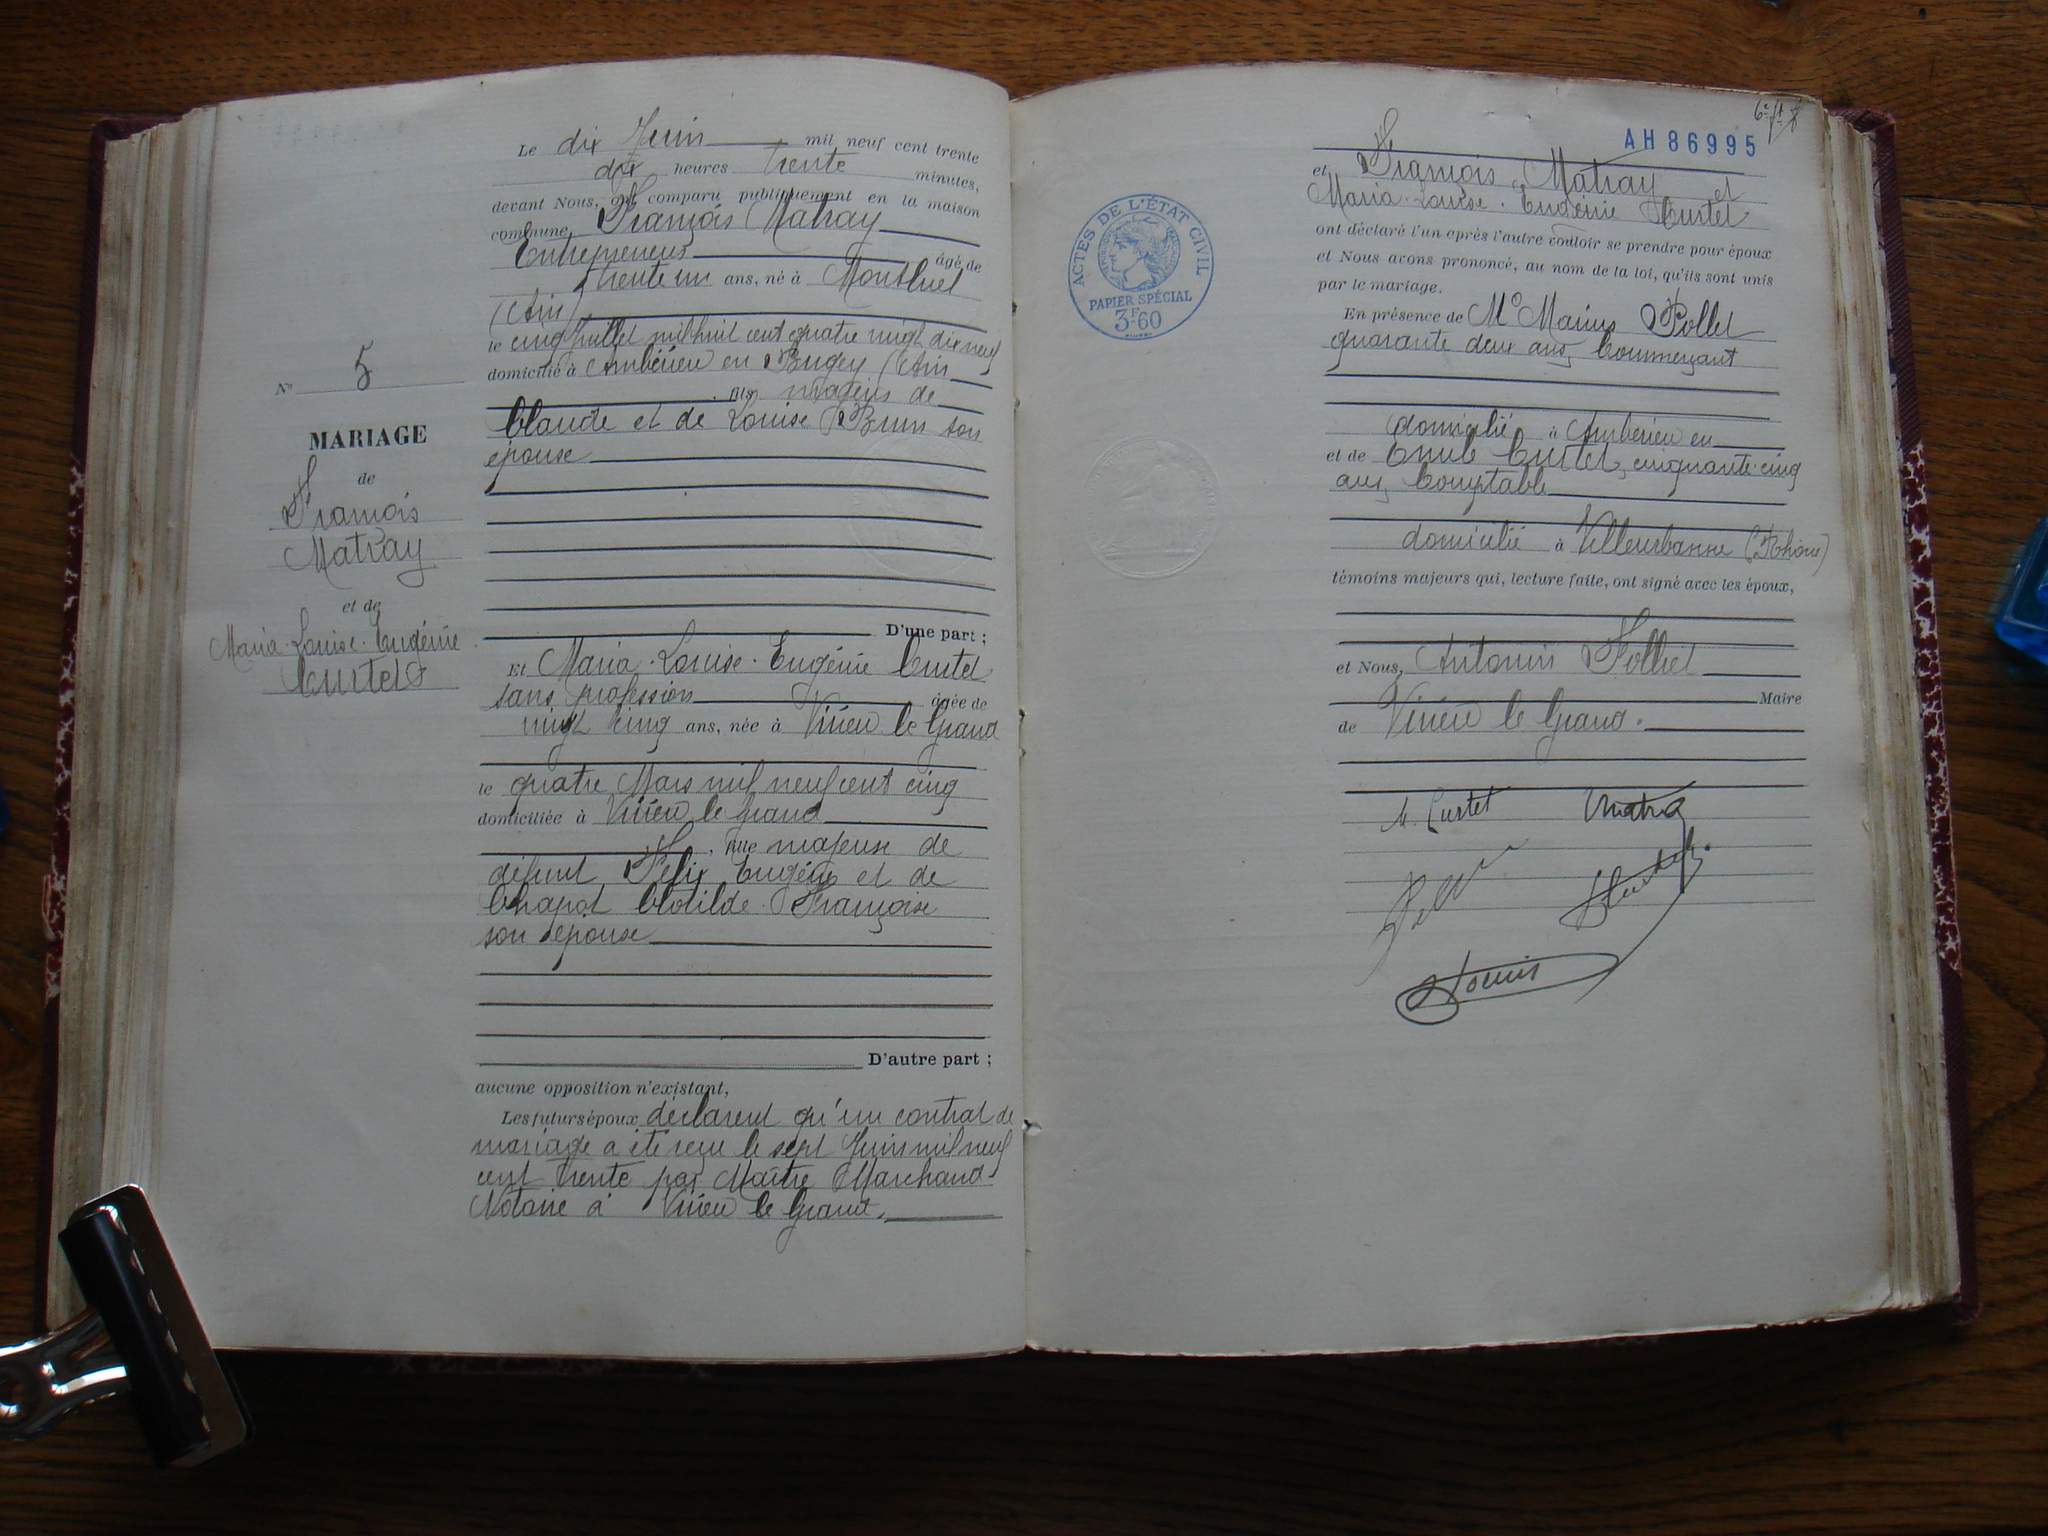 Le dix Juin mil neuf cent trente
dix heures trente minutes,
devant Nous, ont comparu publiquement en la maison
commune François Matray
Entrepreneur âgé de
trente un ans, né à Montluel
(Ain)
le cinq Juillet mil huit cent quatre vingt dix neuf
domicilié à Ambérieu en Bugey (Ain
fils majeur de
Claude et de Louise Brun son
épouse
N° 5
MARIAGE
de
François
Matray
et de
Maria-Louise-Eugénie
Curtet
D'une part ;
Et Maria-Louise-Eugénie Curtet
sans profession âgée de
vingt cinq ans, née à Virieu le Grand
le quatre Mars mil neuf cent cinq
domiciliée à Virieu le Grand
, fille majeure de
défunt Félix Eugène et de
Chapot Clotilde Françoise
son épouse
D'autre part ;
aucune opposition n'existant,
Les futurs époux déclarent qu'un contrat de
mariage a été reçu le sept Juin mil neuf
cent trente par Maître Marchand
Notaire à Virieu le Grand,
AH 86995
et François Matray et
Maria-Louise-Eugénie Curtet
ont déclaré l'un après l'autre vouloir se prendre pour époux
et Nous avons prononcé, au nom de la loi, qu'ils sont unis
par le mariage.
ACTES DE L'ÉTAT CIVIL
PAPIER SPÉCIAL
3F60
En présence de Marius Pollet
quarante deux ans, Commerçant
domicilié à Ambérieu en
et de Emile Curtet, cinquante-cinq
ans, Comptable
domicilié à Villeurbanne (Rhône)
témoins majeurs qui, lecture faite, ont signé avec les époux,
et Nous, Antonin Folliet
Maire
de Virieu le Grand.
M. Curtet Matray